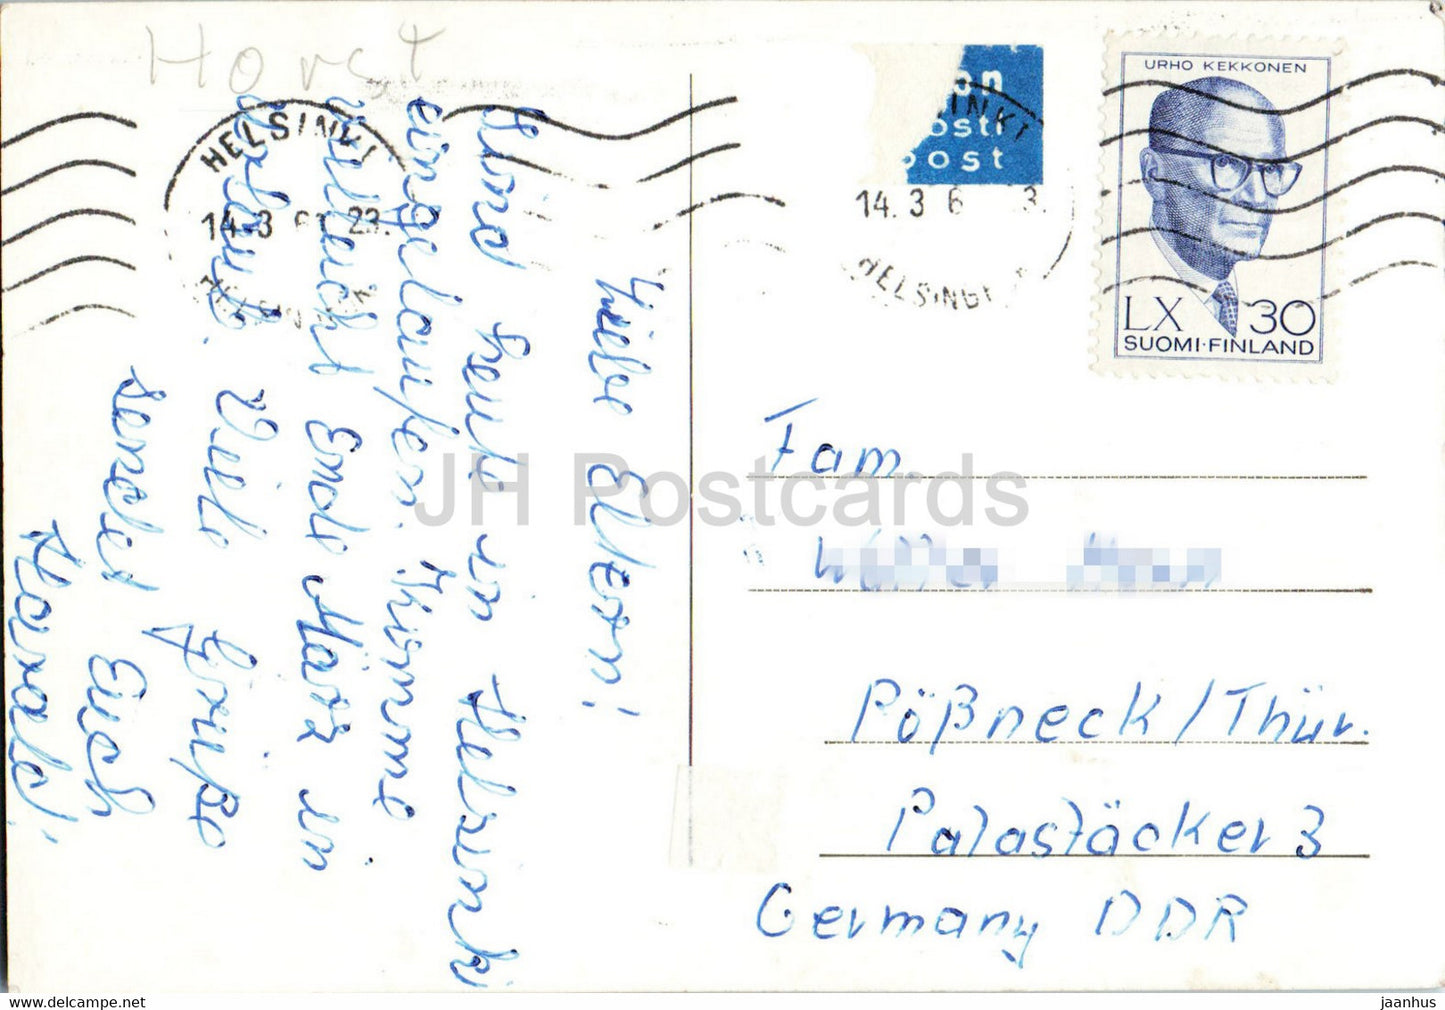 Horst
HELSINKI
14.3 6 23.
HELSINKI
on
posti
post
HELSINKI
14.3 6 3.
URHO KEKKONEN
LX 30
SUOMI·FINLAND
Liebe Eltern!
Sind heute in Helsinki
eingelaufen. Komme
vielleicht Ende März in
Urlaub. Viele Grüße
sendet Euch
Harald.
Fam
Pößneck/Thür.
Palastäcker 3
Germany DDR
JH Postcards
www.delcampe.net
jaanhus